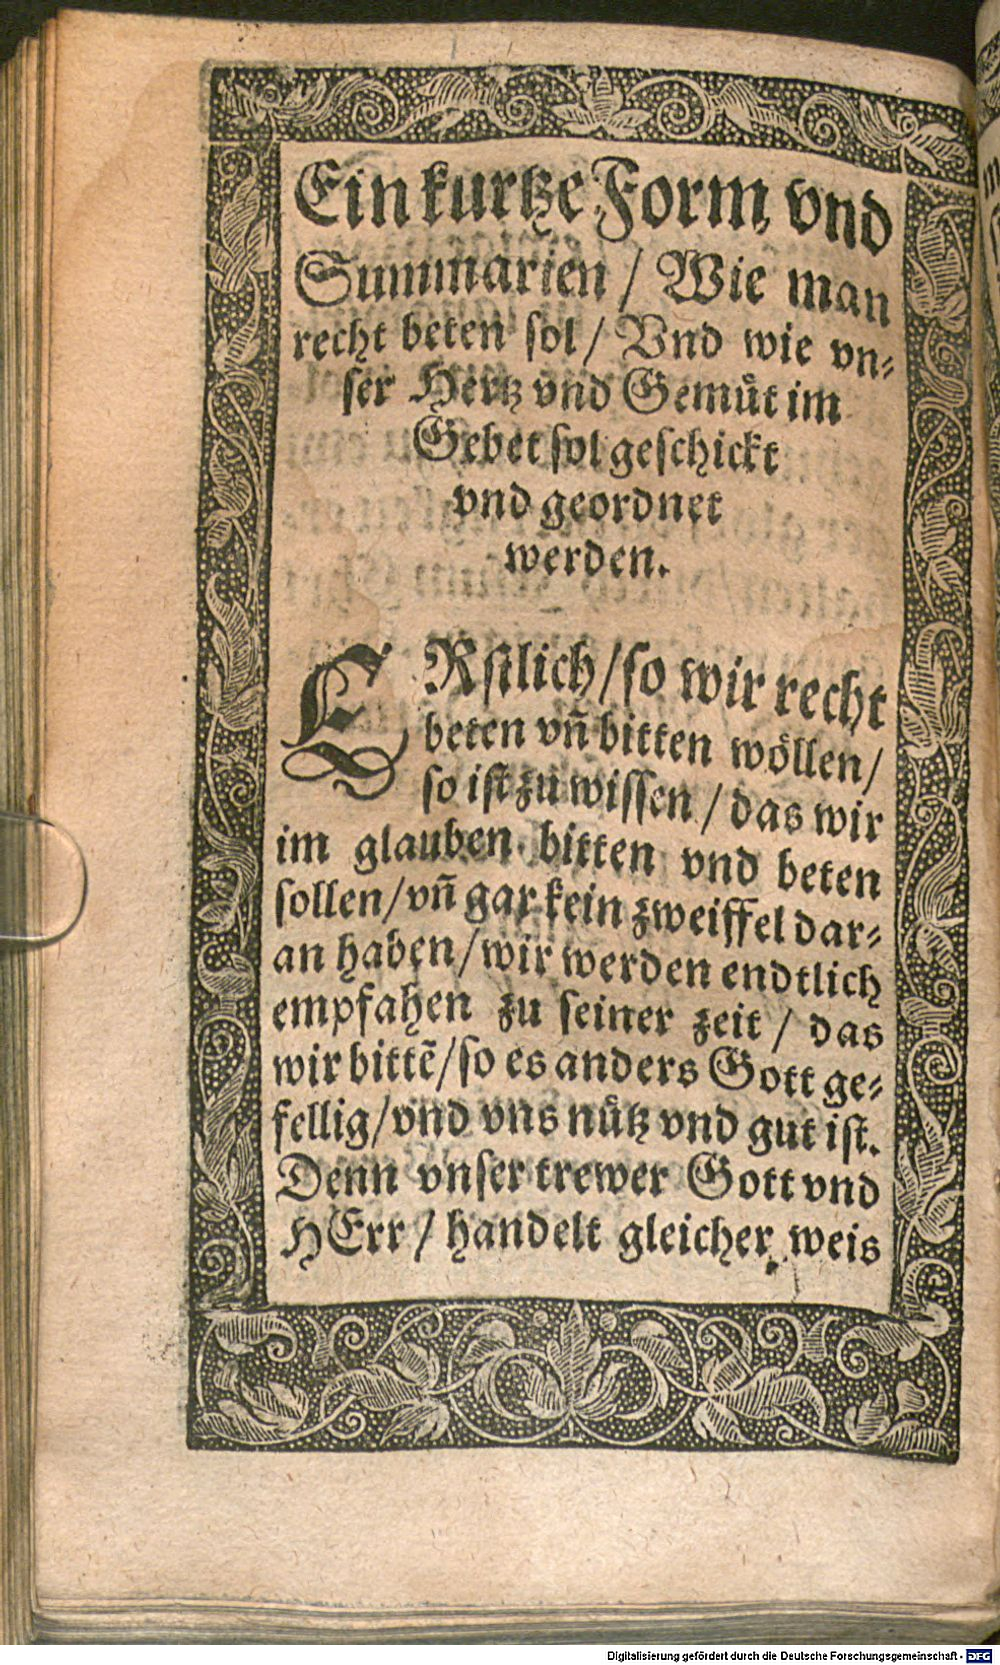 Ein kurtze Form vnd
Summarien / Wie man
recht beten sol / Vnd wie vn⸗
ser Hertz vnd Gemuͤt im
Gebet sol geschickt
vnd geordnet
werden.
ERstlich / so wir recht
beten vñ bitten woͤllen /
so ist zu wissen / das wir
im glauben bitten vnd beten
sollen / vñ gar kein zweiffel dar⸗
an haben / wir werden endtlich
empfahen zu seiner zeit / das
wir bittẽ / so es anders Gott ge⸗
fellig / vnd vns nuͤtz vnd gut ist.
Denn vnser trewer Gott vnd
HErr / handelt gleicher weis
Digitalisierung gefördert durch die Deutsche Forschungsgemeinschaft - DFG